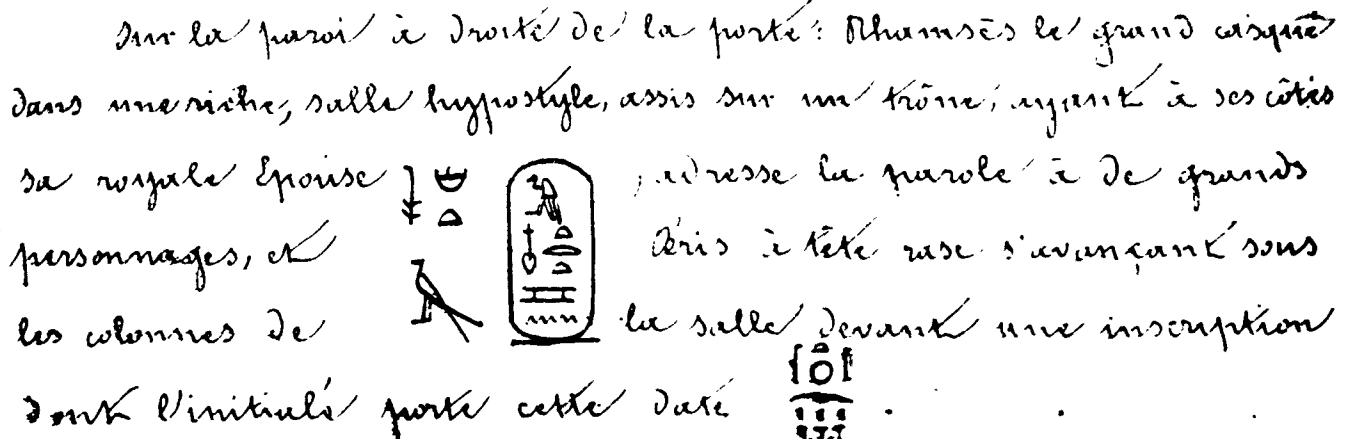 Sur la paroi à droite de la porte: Rhamsès le grand casqué
dans une riche, salle hypostyle, assis sur un trône, ayant à ses côtés
sa royale Epouse , adresse la parole à de grands
personnages, et à tête rase s'avançant sous
les colonnes de la salle devant une inscription
dont l'initiale porte cette date